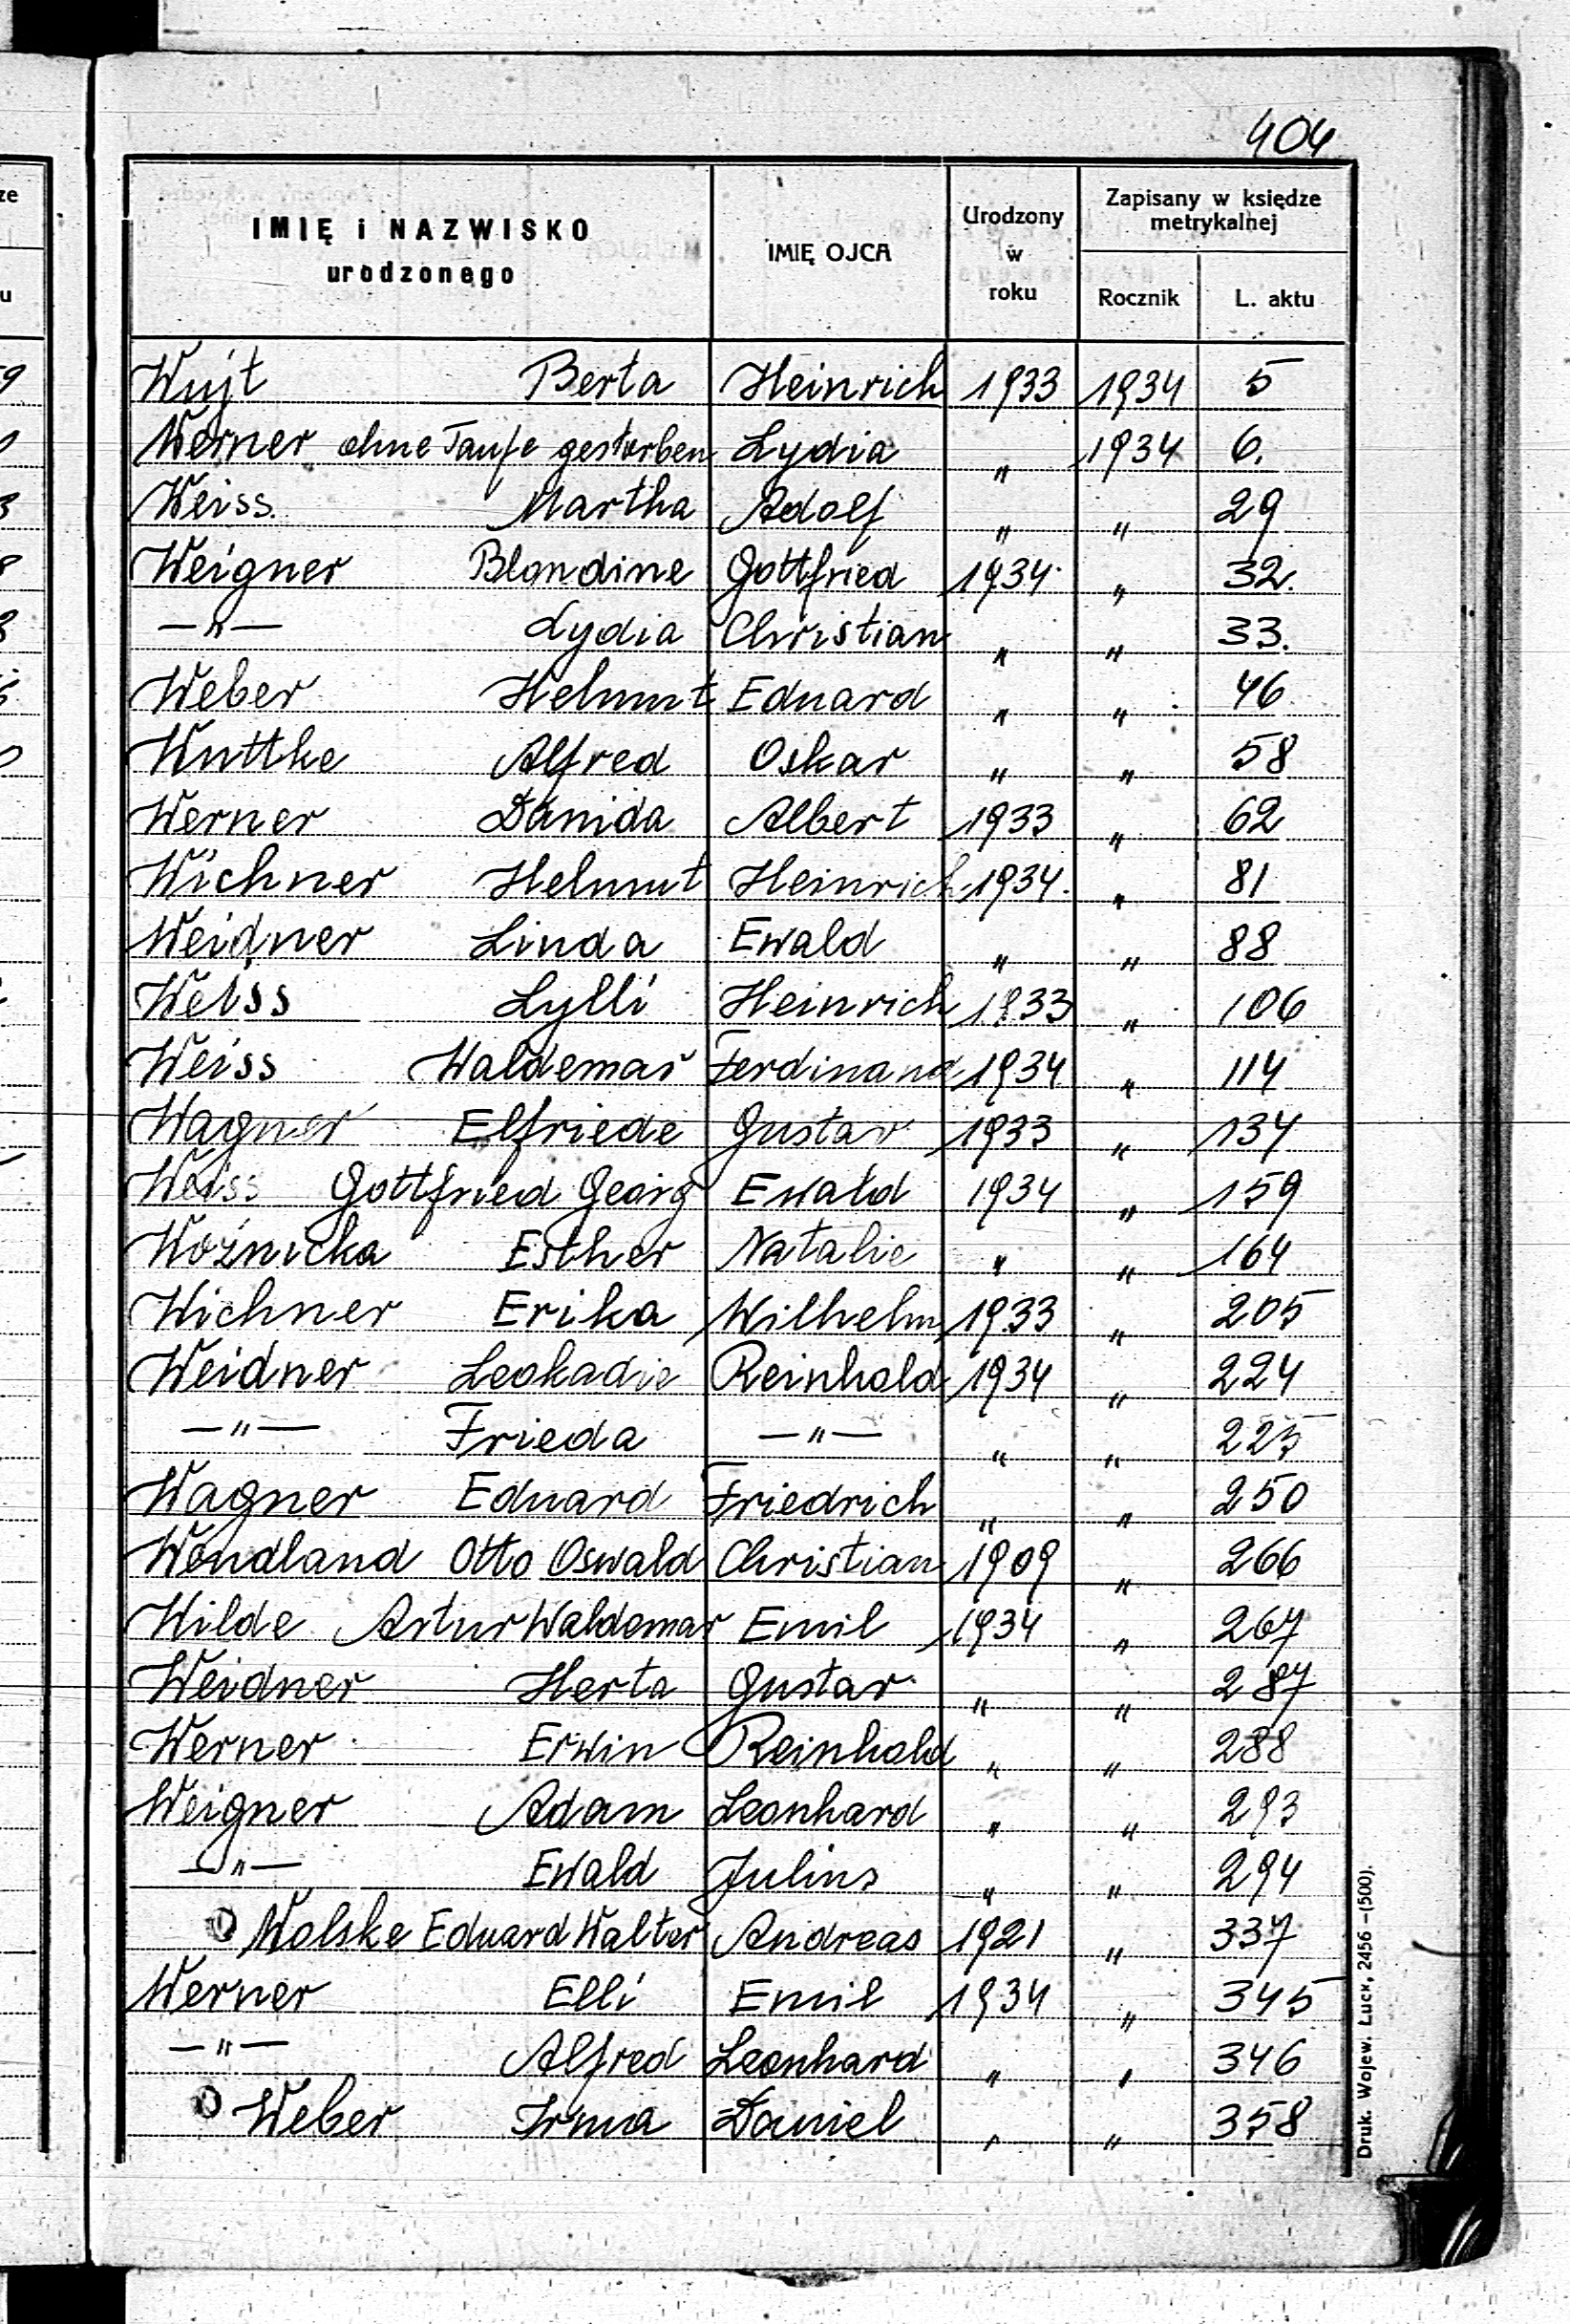 404
IMIĘ i NAZWISKO urodzonego IMIĘ OJCA Urodzony w roku Zapisany w księdze metrykalnej
Rocznik L. aktu
Wujt Berta Heinrich 1933 1934 5
Werner ohne Taufe gestorben Lydia " 1934 6.
Weiss. Martha Adolf " " 29
Weigner Blondine Gottfried 1934 " 32.
—"— Lydia Christian " " 33.
Weber Helmut Eduard " " 46
Wuttke Alfred Oskar " " 58
Werner Danida Albert 1933 " 62
Wichner Helmut Heinrich 1934. " 81
Weidner Linda Ewald " " 88
Weiss Lylli Heinrich 1933 " 106
Weiss Waldemar Ferdinand 1934 " 114
Wagner Elfriede Gustav 1933 " 134
Weiss Gottfried Georg Ewald 1934 " 159
Woźnicka Esther Natalie " " 164
Wichner Erika Wilhelm 1933 " 205
Weidner Leokadie Reinhold 1934 " 224
—"— Frieda —"— " " 225
Wagner Eduard Friedrich " " 250
Wendland Otto Oswald Christian 1909 " 266
Wilde Artur Waldemar Emil 1934 " 267
Weidner Herta Gustav " " 287
Werner Erwin Reinhold " " 288
Weigner Adam Leonhard " " 293
—"— Ewald Julius " " 294
Wolske Eduard Walter Andreas 1921 " 337
Werner Elli Emil 1934 " 345
—"— Alfred Leonhard " " 346
Weber Irma Daniel " " 358
Druk. Wojew. Łuck, 2456 – (500).